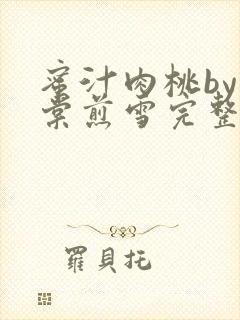 蜜汁肉桃by
棠煎雪完整
羅貝托